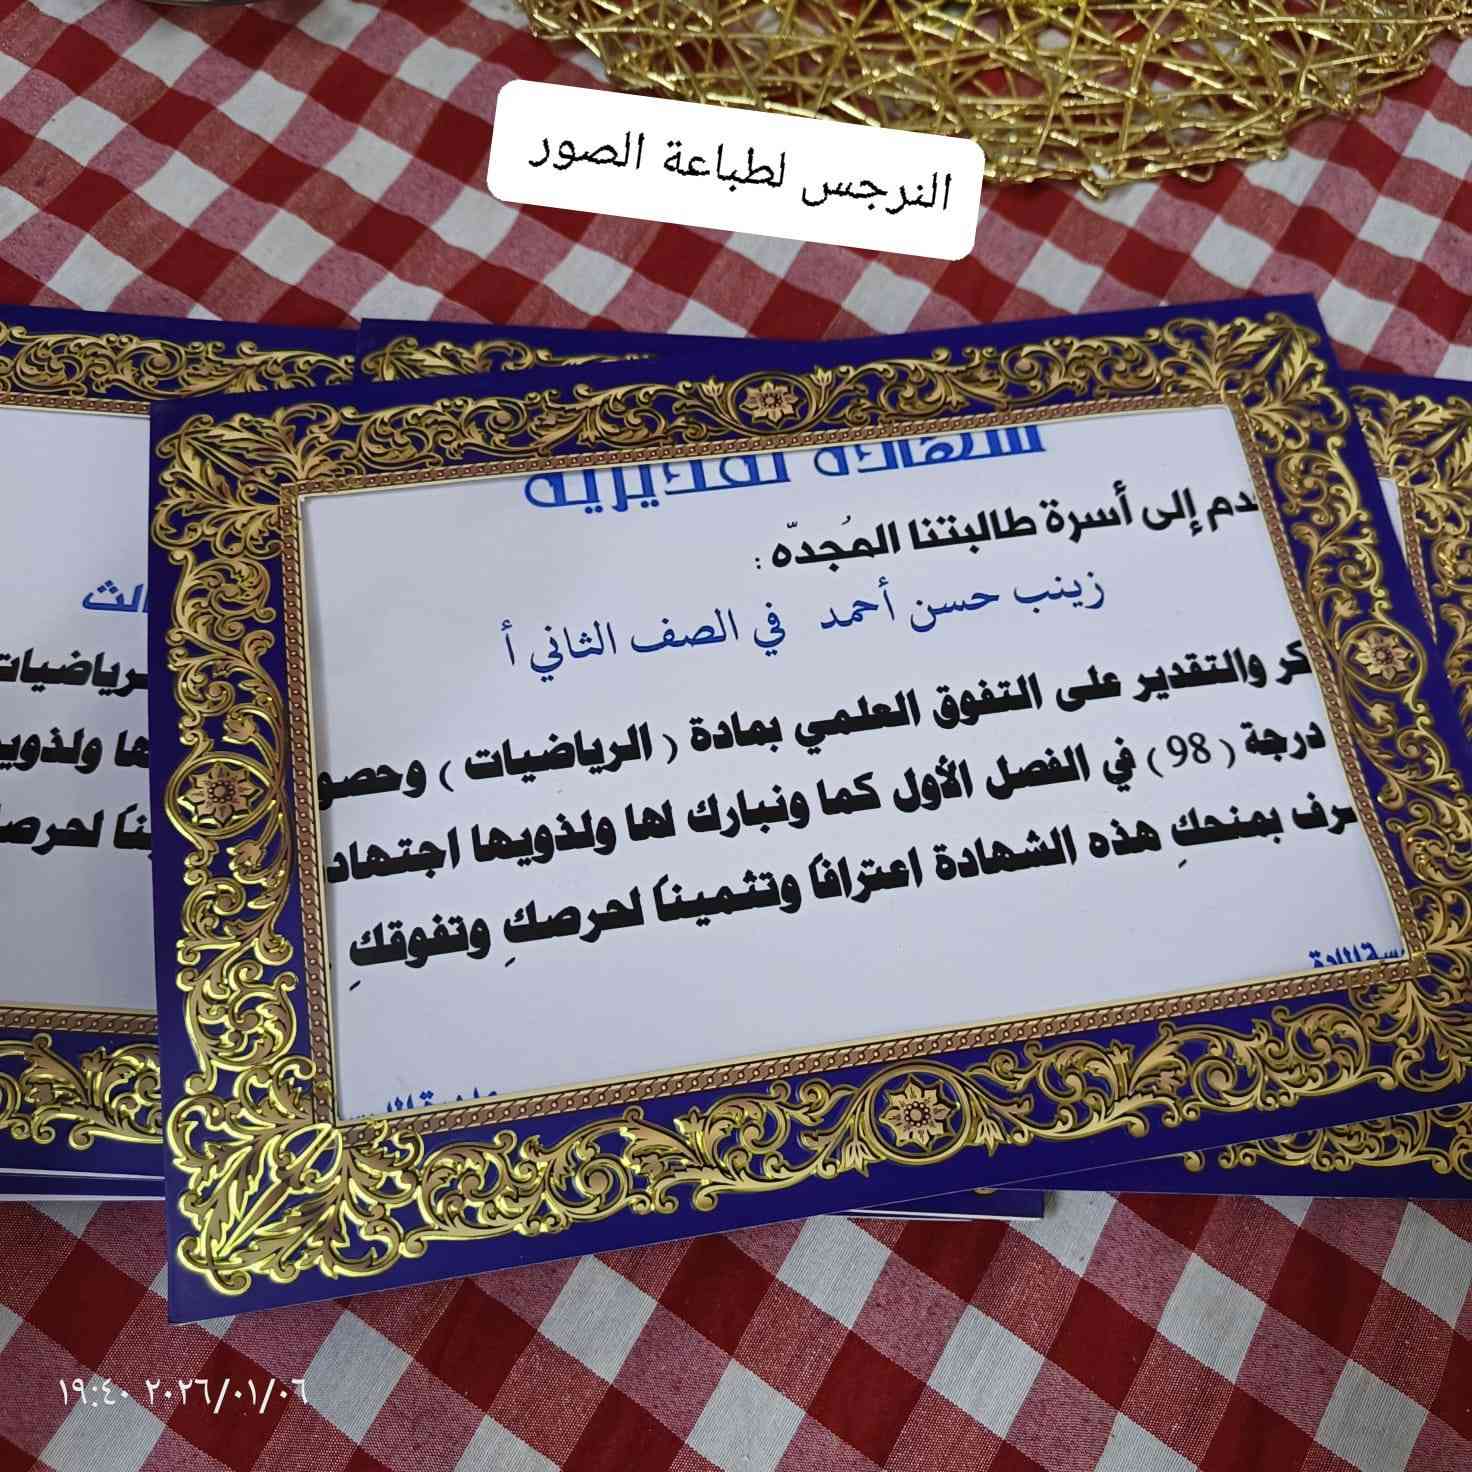 النرجس لطباعة الصور
شهادة تقديرية
إلى أسرة طالبتنا المُجدّه :
زينب حسن أحمد في الصف الثاني أ
والتقدير على التفوق العلمي بمادة ( الرياضيات )
درجة ( 98 ) في الفصل الأول كما ونبارك لها ولذويها
بمنحكِ هذه الشهادة اعترافاً وتثميناً لحرصكِ وتفوقكِ
ولذوي
لحرص
١٩:٤٠ ٢٠٢٦/٠١/٠٦